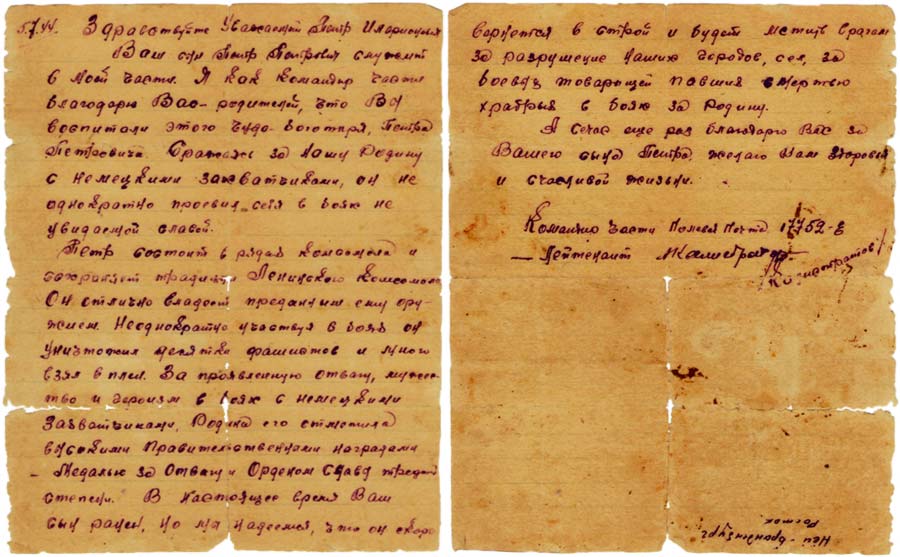 5.7.44. Здравствуйте Уважаемый Петр Иларионович
Ваш сын Петр Петрович служит
в моей части. Я как командир части
благодарю Вас - родителей, что Вы
воспитали этого чудо-богатыря, Петра
Петровича. Сражаясь за нашу Родину
с немецкими захватчиками, он не
однократно проевил себя в боях не
увидаемой славой.
Петр состоит в рядах комсомола и
сохраняет традиции Ленинского Комсомола
Он отлично владеет преданным ему ору-
жием. Неоднократно участвуя в боях он
уничтожил десятки фашистов и много
взял в плен. За проявленную отвагу, мужес-
тво и героизм в боях с немецкими
захватчиками, Родина его отметила
высокими правительственными наградами
- Медалью за Отвагу и Орденом Славы третей
степени. В настоящее время Ваш
сын ранен, но мы надеемся, что он скоро
вернется в строй и будет мстить врагам
за разрушение наших городов, сел, за
боевых товарищей павших смертью
храбрых в боях за Родину.
А сечас еще раз благодарю Вас за
Вашего сына Петра, желаю Вам здоровья
и счастливой жизни.
Командир части Полевая Почта 17752-Е
- Лейтенант
Ней-бранденбург
Росток